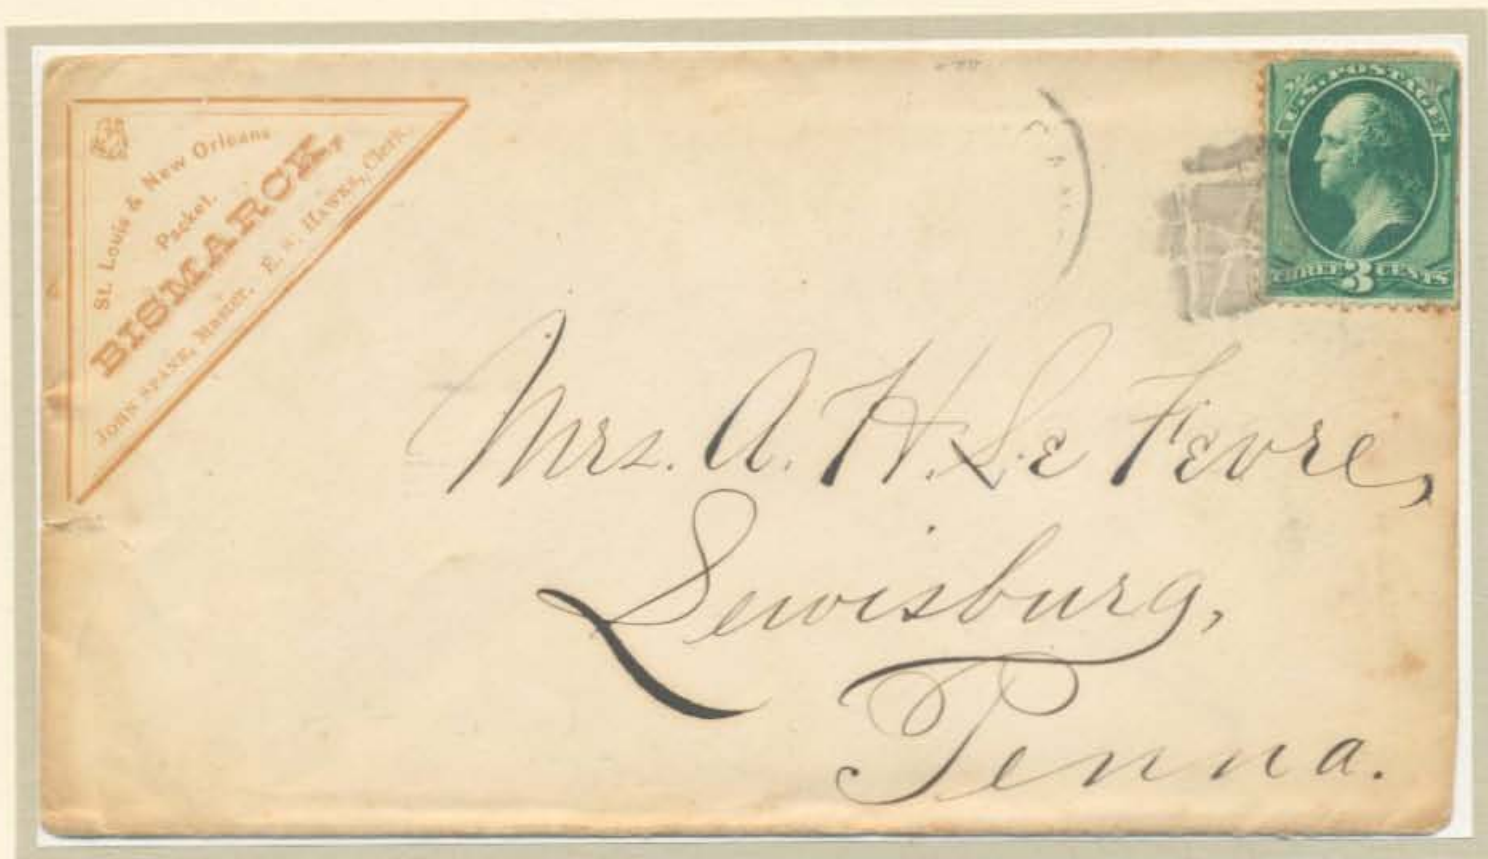 St. Louis & New Orleans
Packet.
BISMARCK,
JOHN SPANE, Master. E. HAWKS, Clerk.
U.S. POSTAGE
THREE 3 CENTS
Mrs. A. H. Le Fevre,
Lewisburg,
Penna.